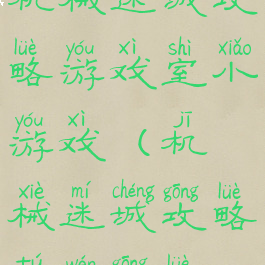 机械迷城攻
lüè yóu xì shì xiǎo
略游戏室小
yóu xì jī
游戏（机
xiè mí chéng gōng lüè
械迷城攻略